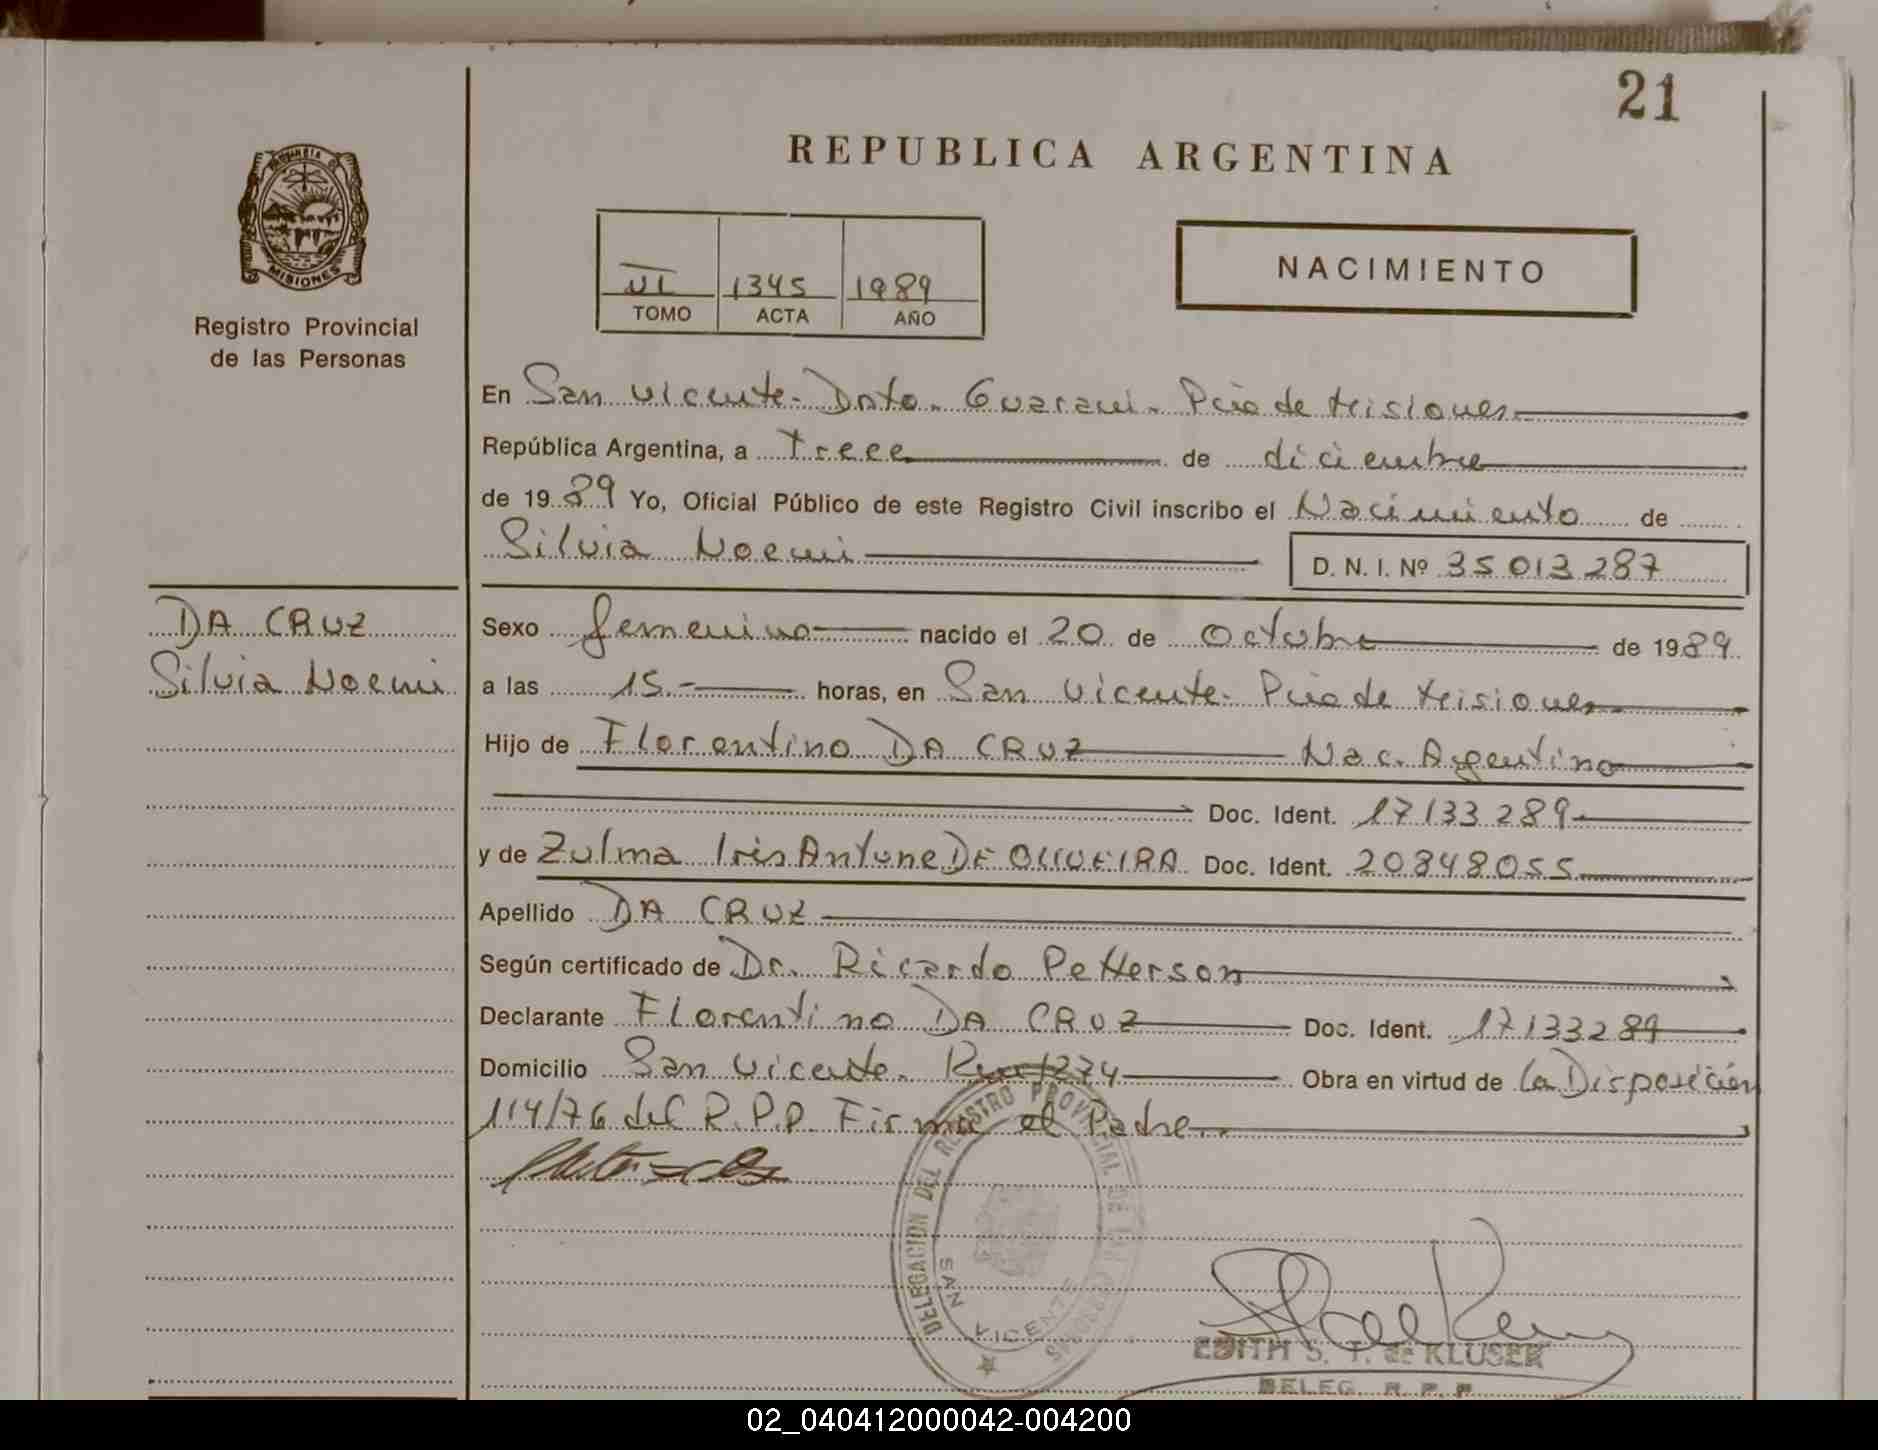 21
REPUBLICA ARGENTINA
PROVINCIA DE
MISIONES
Registro Provincial
de las Personas
VI 1345 1989
TOMO ACTA AÑO
NACIMIENTO
En San Vicente - Dpto. Guarani - Pcia de Misiones
República Argentina, a trece de diciembre
de 1989 Yo, Oficial Público de este Registro Civil inscribo el Nacimiento de
Silvia Noemi
D. N. I. Nº 35 013 287
DA CRUZ
Silvia Noemi
Sexo femenino nacido el 20 de octubre de 1989
a las 15.- horas, en San Vicente - Pcia de Misiones
Hijo de Florentino DA CRUZ Nac. Argentino
Doc. Ident. 17133289
y de Zulma Iris Antune DE OLIVEIRA Doc. Ident. 20848055
Apellido DA CRUZ
Según certificado de Dr. Ricardo Petterson
Declarante Florentino DA CRUZ Doc. Ident. 17133289
Domicilio San Vicente. 1274 Obra en virtud de la Disposición
114/76 del R.P.P. Firma el Padre
DELEGACION DEL REGISTRO PROVINCIAL DE LAS PERSONAS
SAN VICENTE
EDITH S. T. de KLUSER
DELEG. R. P. P.
02_040412000042-004200